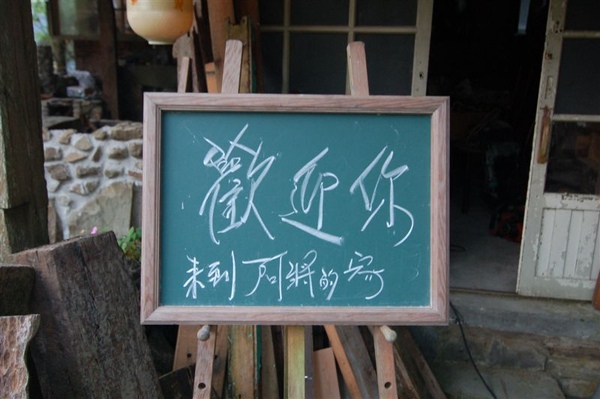 歡迎你
来到阿將的家